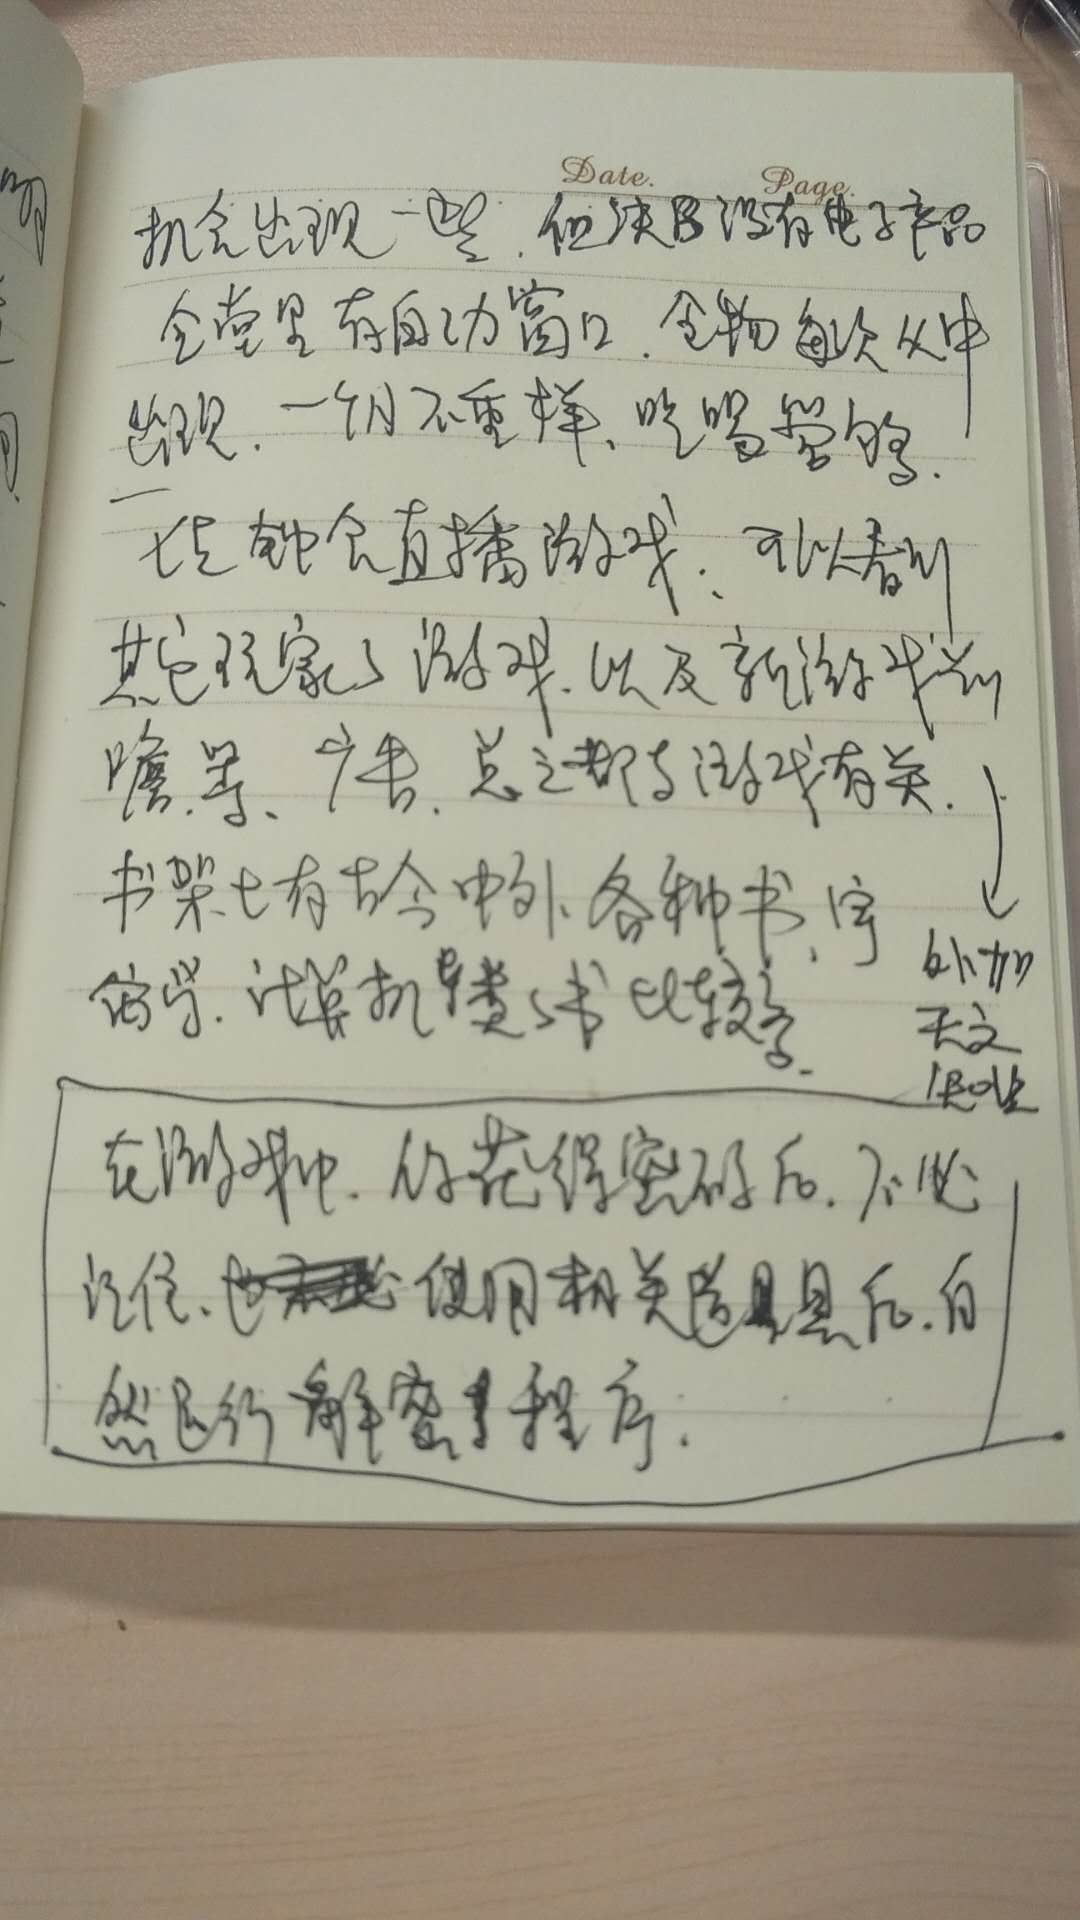 Date. Page.
机会出现一些.但决没有电子产品
食堂里有自动窗口.食物每次从中
出现.一个月不重样、吃喝管够.
大屏会直播游戏、可以看到
其它玩家的游戏.以及新游戏前
瞻.等、广告.总之都与游戏有关.
书架上有古今中外、各种书、宇
宙学.计算机类的书比较多.
外加
天文
在游戏中.你获得密码后.不必
记住、使用相关道具后.自
然运行解密程序.